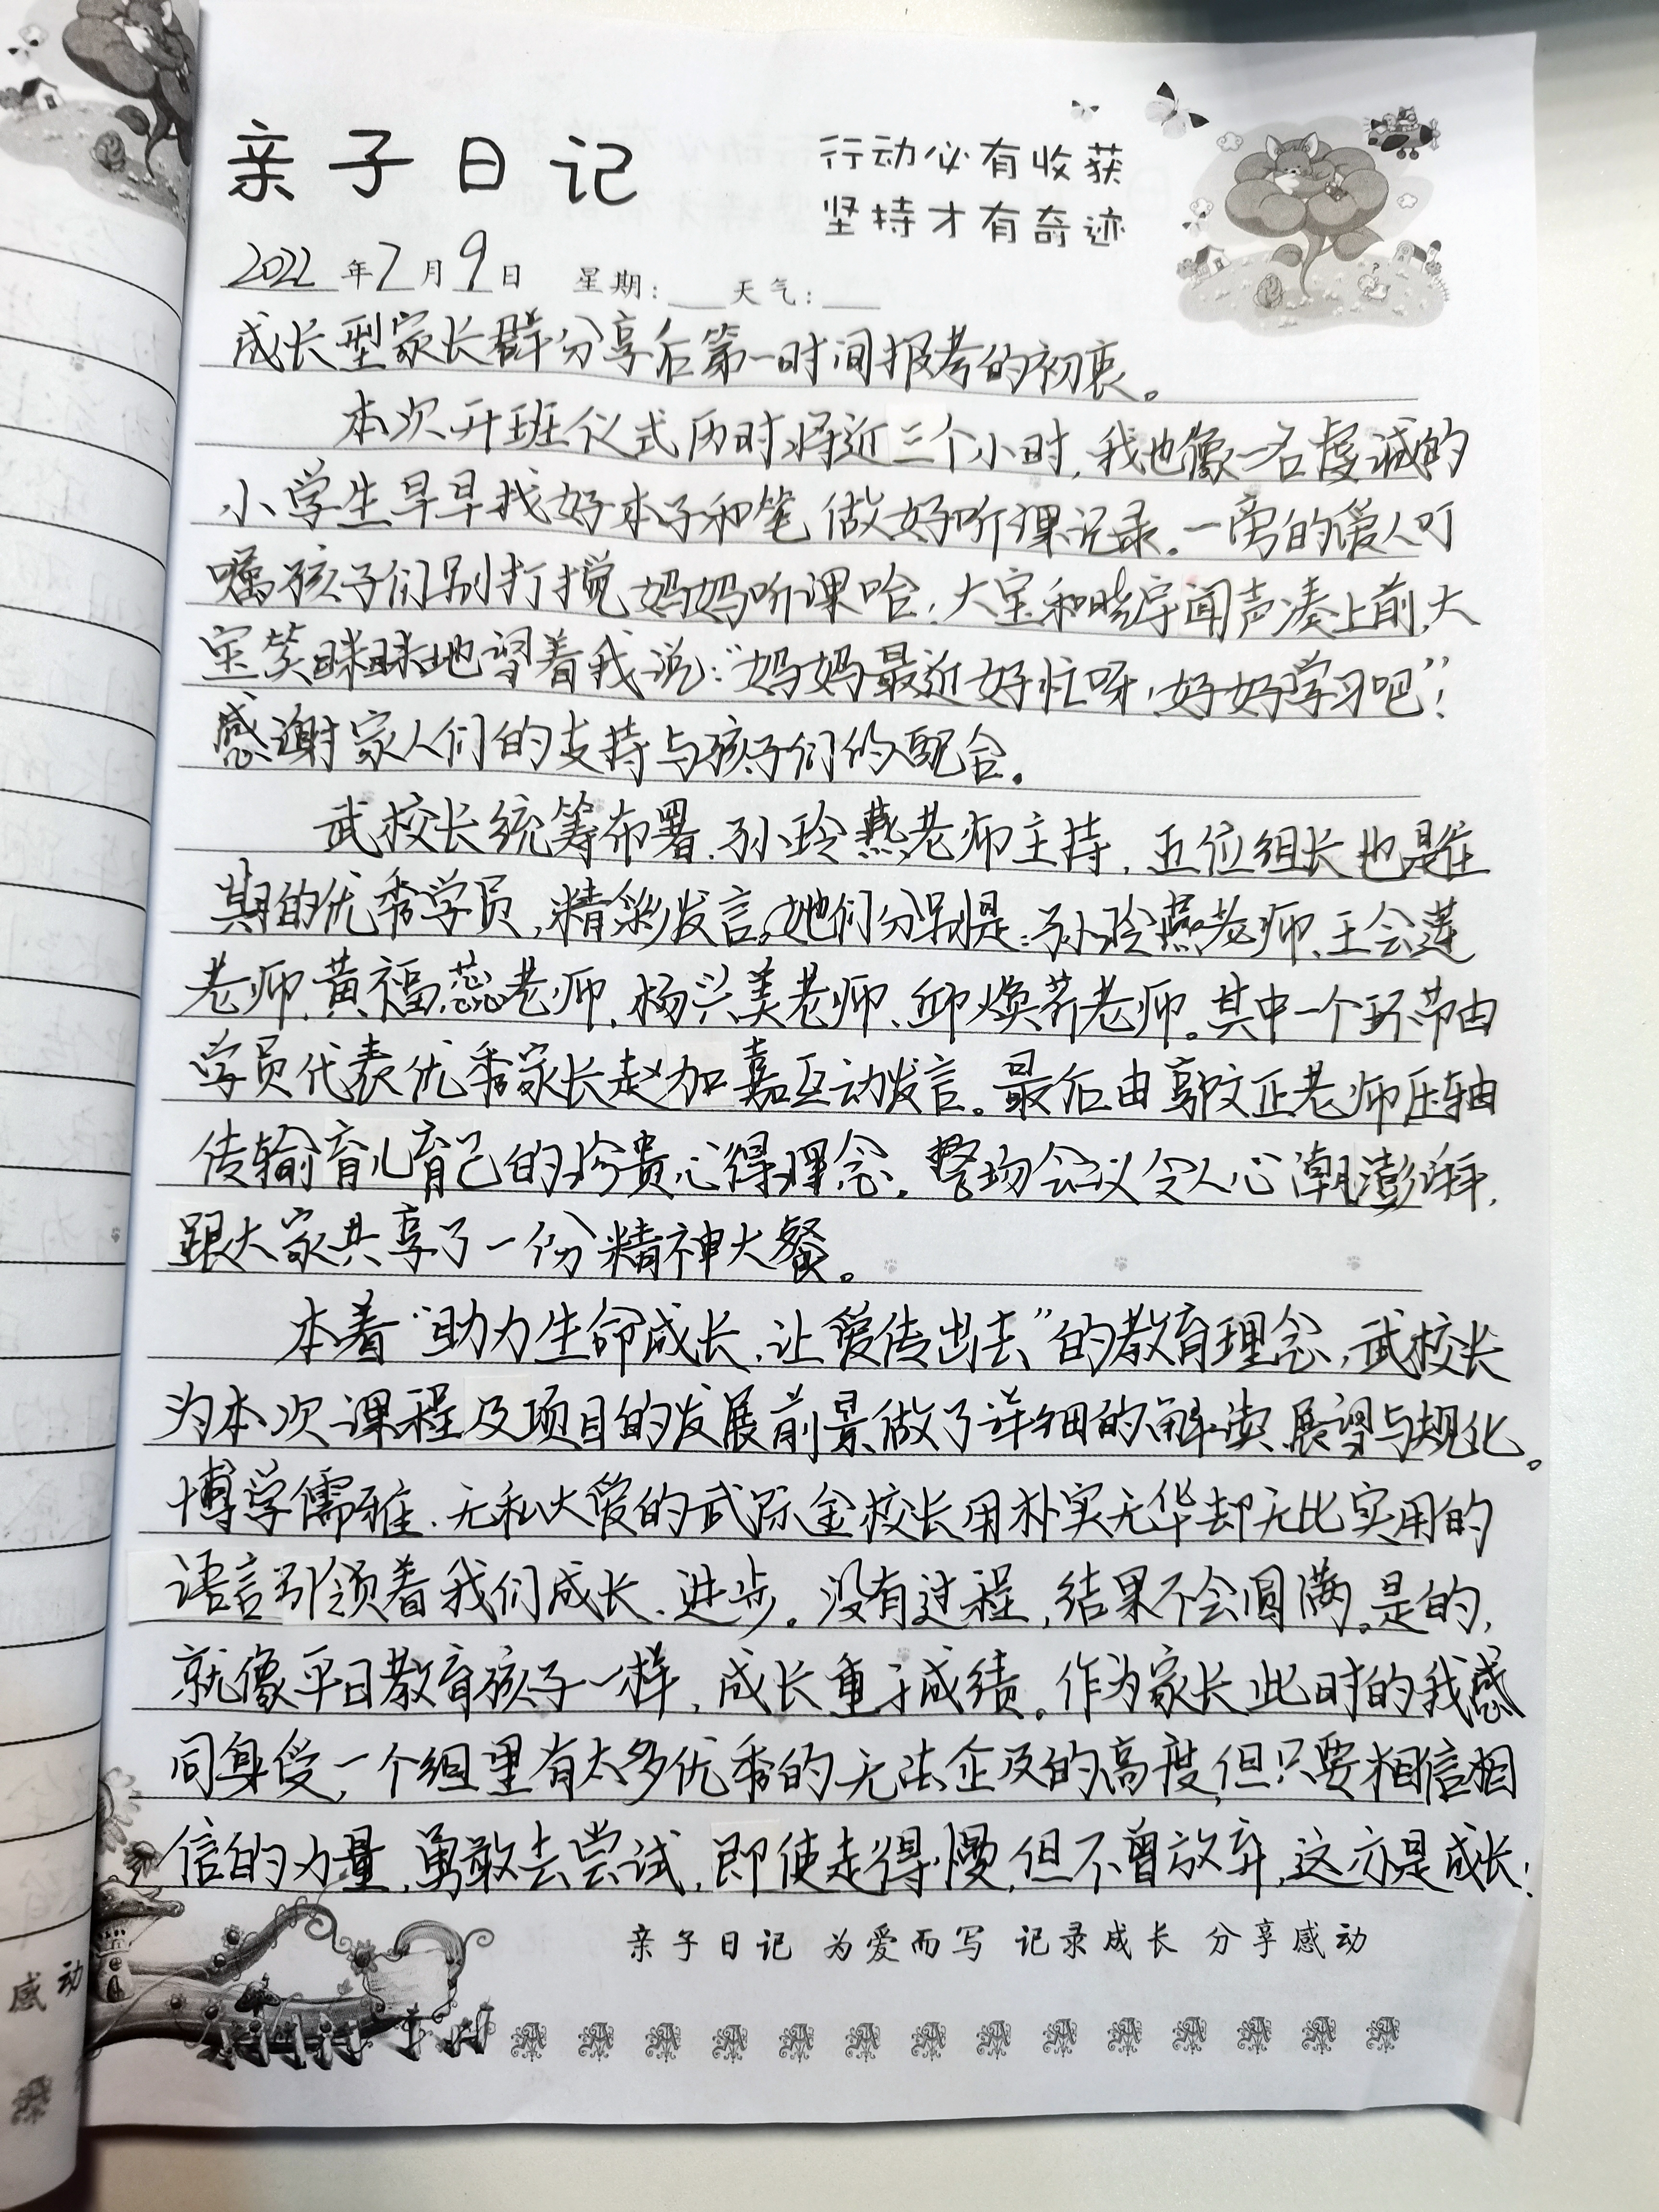 亲子日记
行动必有收获
坚持才有奇迹
2022年7月9日 星期:___天气:___
成长型家长群分享后第一时间报考的初衷。
本次开班仪式历时将近三个小时,我也像一名虔诚的
小学生早早找好本子和笔,做好听课记录。一旁的爱人叮
嘱孩子们别打搅妈妈听课哈,大宝和晓宇闻声凑上前,大
宝笑眯眯地望着我说:“妈妈最近好忙呀,好好学习吧”!
感谢家人们的支持与孩子们的配合。
武校长统筹布署,孙玲燕老师主持,五位组长也是往
期的优秀学员,精彩发言。她们分别是:孙玲燕老师、王会莲
老师、黄福蕊老师、杨兴美老师、邱焕荞老师。其中一个环节由
学员代表优秀家长赵加嘉互动发言。最后由郭文正老师压轴
传输育儿育己的珍贵心得理念。整场会议令人心潮澎湃,
跟大家共享了一份精神大餐。
本着“助力生命成长,让爱传出去”的教育理念,武校长
为本次课程及项目的发展前景做了详细的解读、展望与规化。
博学儒雅、无私大爱的武际金校长用朴实无华却无比实用的
语言引领着我们成长、进步。没有过程,结果不会圆满。是的,
就像平日教育孩子一样,成长重于成绩。作为家长此时的我感
同身受,一个组里有太多优秀的无法企及的高度,但只要相信相
信的力量,勇敢去尝试,即使走得慢,但不曾放弃,这亦是成长!
亲子日记 为爱而写 记录成长 分享感动
感动